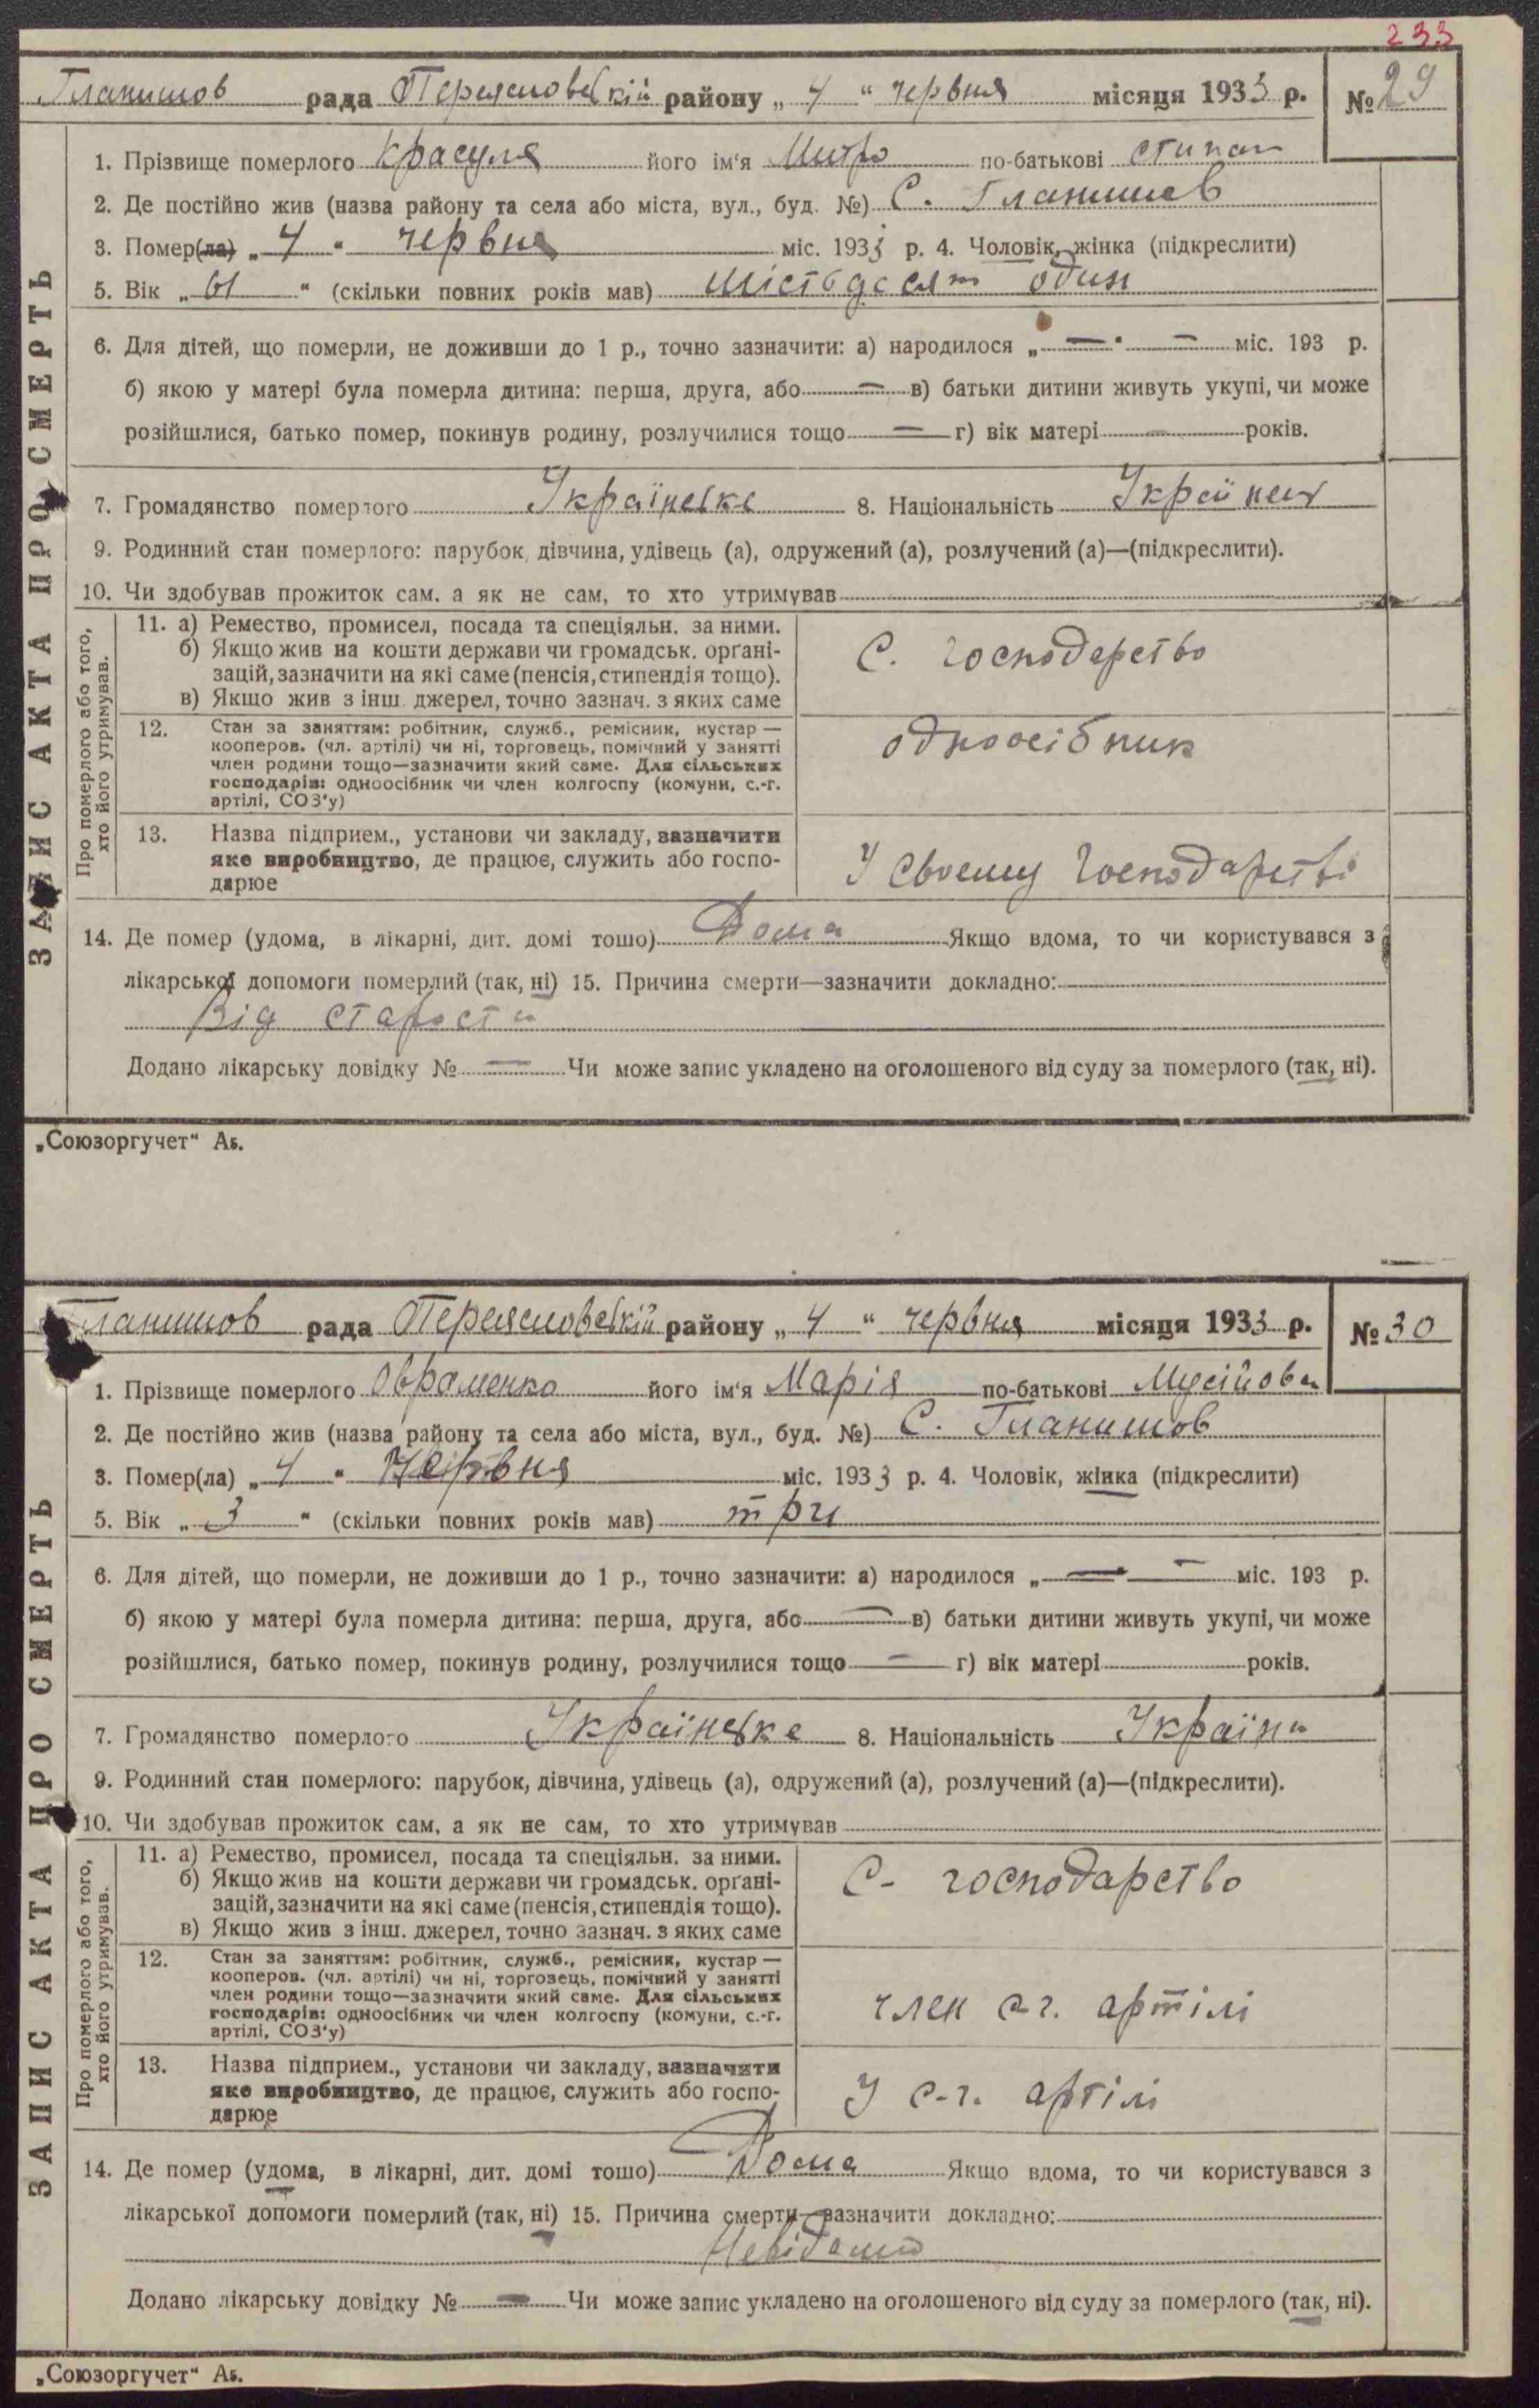 233
Гланишов рада Переясловській району „ 4 “ червня місяця 1933 р. № 29
1. Прізвище померлого Красуля його ім'я Митро по-батькові степан
2. Де постійно жив (назва району та села або міста, вул., буд. №) С. Гланишев
3. Помер(ла) „ 4 “ червня міс. 1933 р. 4. Чоловік, жінка (підкреслити)
5. Вік „ 61 “ (скільки повних років мав) шістьдесят один
6. Для дітей, що померли, не доживши до 1 р., точно зазначити: а) народилося „ — “ — міс. 193 р.
б) якою у матері була померла дитина: перша, друга, або — в) батьки дитини живуть укупі, чи може
розійшлися, батько помер, покинув родину, розлучилися тощо — г) вік матері — років.
7. Громадянство померлого Українське 8. Національність Українец
9. Родинний стан померлого: парубок, дівчина, удівець (а), одружений (а), розлучений (а)—(підкреслити).
10. Чи здобував прожиток сам, а як не сам, то хто утримував
ЗАПИС АКТА ПРО СМЕРТЬ
Про померлого або того, хто його утримував.
11. а) Ремество, промисел, посада та спеціяльн. за ними.
б) Якщо жив на кошти держави чи громадськ. орґані-
зацій, зазначити на які саме (пенсія, стипендія тощо).
в) Якщо жив з інш. джерел, точно зазнач. з яких саме
С. господарство
12. Стан за заняттям: робітник, служб., ремісник, кустар —
кооперов. (чл. артілі) чи ні, торговець, помічний у занятті
член родини тощо—зазначити який саме. Для сільських
господарів: одноосібник чи член колгоспу (комуни, с.-г.
артілі, СОЗ'у)
одноосібник
13. Назва підприєм., установи чи закладу, зазначити
яке виробництво, де працює, служить або госпо-
дарює
У своему господарстві
14. Де помер (удома, в лікарні, дит. домі тощо) Дома Якщо вдома, то чи користувався з
лікарської допомоги померлий (так, ні) 15. Причина смерти—зазначити докладно:
Від старости
Додано лікарську довідку № — Чи може запис укладено на оголошеного від суду за померлого (так, ні).
„Союзоргучет“ Аз.
Гланишов рада Переясловській району „ 4 “ червня місяця 1933 р. № 30
1. Прізвище померлого Овраменко його ім'я Марія по-батькові Мусійовна
2. Де постійно жив (назва району та села або міста, вул., буд. №) С. Гланишов
3. Помер(ла) „ 4 “ Червня міс. 1933 р. 4. Чоловік, жінка (підкреслити)
5. Вік „ 3 “ (скільки повних років мав) три
6. Для дітей, що померли, не доживши до 1 р., точно зазначити: а) народилося „ — “ — міс. 193 р.
б) якою у матері була померла дитина: перша, друга, або — в) батьки дитини живуть укупі, чи може
розійшлися, батько помер, покинув родину, розлучилися тощо — г) вік матері років.
7. Громадянство померлого Українське 8. Національність Україн
9. Родинний стан померлого: парубок, дівчина, удівець (а), одружений (а), розлучений (а)—(підкреслити).
10. Чи здобував прожиток сам, а як не сам, то хто утримував
ЗАПИС АКТА ПРО СМЕРТЬ
Про померлого або того, хто його утримував.
11. а) Ремество, промисел, посада та спеціяльн. за ними.
б) Якщо жив на кошти держави чи громадськ. орґані-
зацій, зазначити на які саме (пенсія, стипендія тощо).
в) Якщо жив з інш. джерел, точно зазнач. з яких саме
С- господарство
12. Стан за заняттям: робітник, служб., ремісник, кустар —
кооперов. (чл. артілі) чи ні, торговець, помічний у занятті
член родини тощо—зазначити який саме. Для сільських
господарів: одноосібник чи член колгоспу (комуни, с.-г.
артілі, СОЗ'у)
член с-г. артілі
13. Назва підприєм., установи чи закладу, зазначити
яке виробництво, де працює, служить або госпо-
дарює
У с-г. артілі
14. Де помер (удома, в лікарні, дит. домі тощо) Дома Якщо вдома, то чи користувався з
лікарської допомоги померлий (так, ні) 15. Причина смерти—зазначити докладно:
Невідомо
Додано лікарську довідку № — Чи може запис укладено на оголошеного від суду за померлого (так, ні).
„Союзоргучет“ Аз.